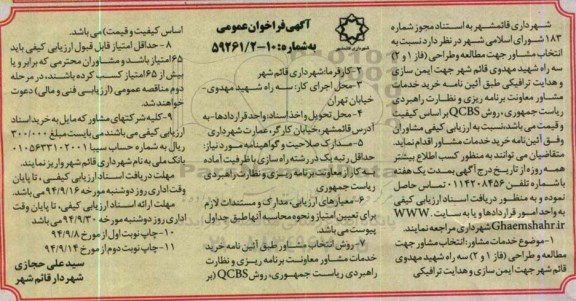 آگهی فراخوان عمومی
به شماره: ۱۰-۵۹۲۶۱/۲
شهرداری قائمشهر به استناد مجوز شماره
۱۸۳ شورای اسلامی شهر در نظر دارد نسبت به
انتخاب مشاور جهت مطالعه و طراحی (فاز ۱ و ۲)
سه راه شهید مهدوی قائم شهر جهت ایمن سازی
و هدایت ترافیکی طبق آئین نامه خرید خدمات
مشاور معاونت برنامه ریزی و نظارت راهبردی
ریاست جمهوری، روش QCBS بر اساس کیفیت
و قیمت می باشد، نسبت به ارزیابی کیفی مشاوران
وفق آئین نامه خرید خدمات مشاور اقدام نماید.
متقاضیان می توانند به منظور کسب اطلاع بیشتر
همه روزه از تاریخ درج آگهی بمدت یک هفته
با شماره تلفن ۰۱۱۴۲۰۸۴۵۶ تماس حاصل
نموده و به منظور دریافت اسناد ارزیابی کیفی
به واحد امور قراردادها و یا به سایت WWW.
Ghaemshahr.ir شهرداری مراجعه نمایند.
۱- موضوع خدمات مشاور: انتخاب مشاور جهت
مطالعه و طراحی (فاز ۱ و ۲) سه راه شهید مهدوی
قائم شهر جهت ایمن سازی و هدایت ترافیکی
۲- کارفرما: شهرداری قائم شهر
۳- محل اجرای کار: سه راه شهید مهدوی-
خیابان تهران
۴- محل تحویل و اخذ اسناد: واحد قراردادها- به
آدرس قائمشهر، خیابان کارگر، عمارت شهرداری
۵- مدارک صلاحیت و گواهینامه مورد نیاز:
حداقل رتبه یک در رشته راه سازی با ظرفیت آماده
به کار از معاونت برنامه ریزی و نظارت راهبردی
ریاست جمهوری
۶- معیارهای ارزیابی، مدارک و مستندات لازم
برای تعیین امتیاز و نحوه محاسبه آنها طبق جداول
پیوست می باشد.
۷- روش انتخاب مشاور طبق آئین نامه خرید
خدمات مشاور معاونت برنامه ریزی و نظارت
راهبردی ریاست جمهوری، روش QCBS (بر
اساس کیفیت و قیمت) می باشد.
۸- حداقل امتیاز قابل قبول ارزیابی کیفی باید
۶۵ امتیاز باشد و مشاوران محترمی که برابر و یا
بیش از ۶۵ امتیاز کسب کرده باشند، در مرحله
دوم مناقصه عمومی (ارزیابی فنی و مالی) دعوت
خواهند شد.
۹- کلیه شرکتهای مشاور که مایل به خرید اسناد
ارزیابی کیفی می باشند می بایست مبلغ ۳۰۰/۰۰۰
ریال به شماره حساب سیبا ۰۱۰۵۶۳۳۱۰۲۰۰۱
بانک ملی به نام شهرداری قائم شهر واریز نمایند.
مهلت دریافت اسناد ارزیابی کیفی، تا پایان
وقت اداری روز دوشنبه مورخه ۹۴/۹/۱۶ می باشد.
مهلت ارائه اسناد ارزیابی کیفی، تا پایان وقت
اداری روز دوشنبه مورخه ۹۴/۹/۳۰ می باشد.
۱۰- چاپ نوبت اول از مورخ ۹۴/۹/۸
۱۱- چاپ نوبت دوم از مورخ ۹۴/۹/۱۴
سید علی حجازی
شهردار قائم شهر